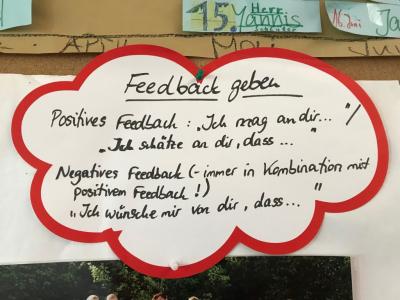 15. Herr Yannis
16. Juni
APRIL
Mai
Feedback geben
Positives Feedback : „Ich mag an dir..."/
„Ich schätze an dir, dass ..."
Negatives Feedback (- immer in Kombination mit
positivem Feedback !)
„Ich wünsche mir von dir, dass ..."